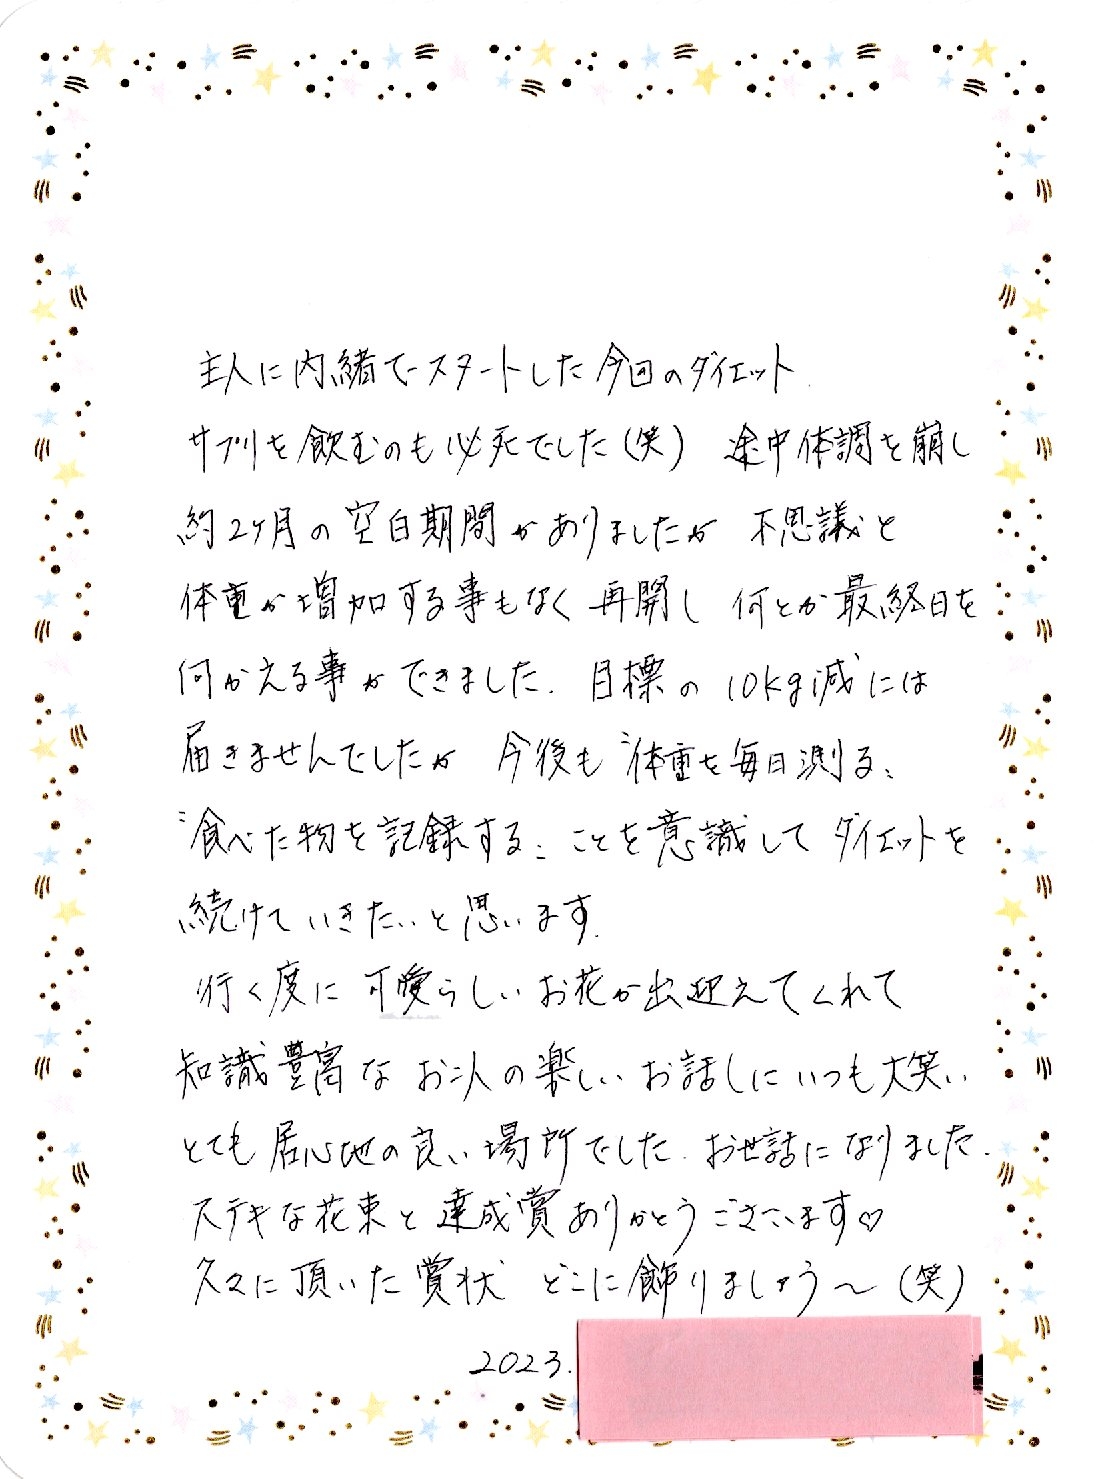 主人に内緒でスタートした今回のダイエット
サプリを飲むのも必死でした(笑) 途中体調を崩し
約2ヶ月の空白期間がありましたが 不思議と
体重が増加する事もなく 再開し 何とか最終日を
何かえる事ができました. 目標の 10kg減には
届きませんでしたが 今後も〝体重を毎日測る〟
〝食べた物を記録する〟ことを意識して ダイエットを
続けていきたいと思います.
行く度に 可愛らしい お花が出迎えてくれて
知識豊富な お二人の楽しい お話しに いつも大笑い
とても 居心地の良い場所でした. お世話になりました.
ステキな花束と達成賞ありがとうございます♡
久々に頂いた賞状 どこに飾りましょう〜(笑)
2023.